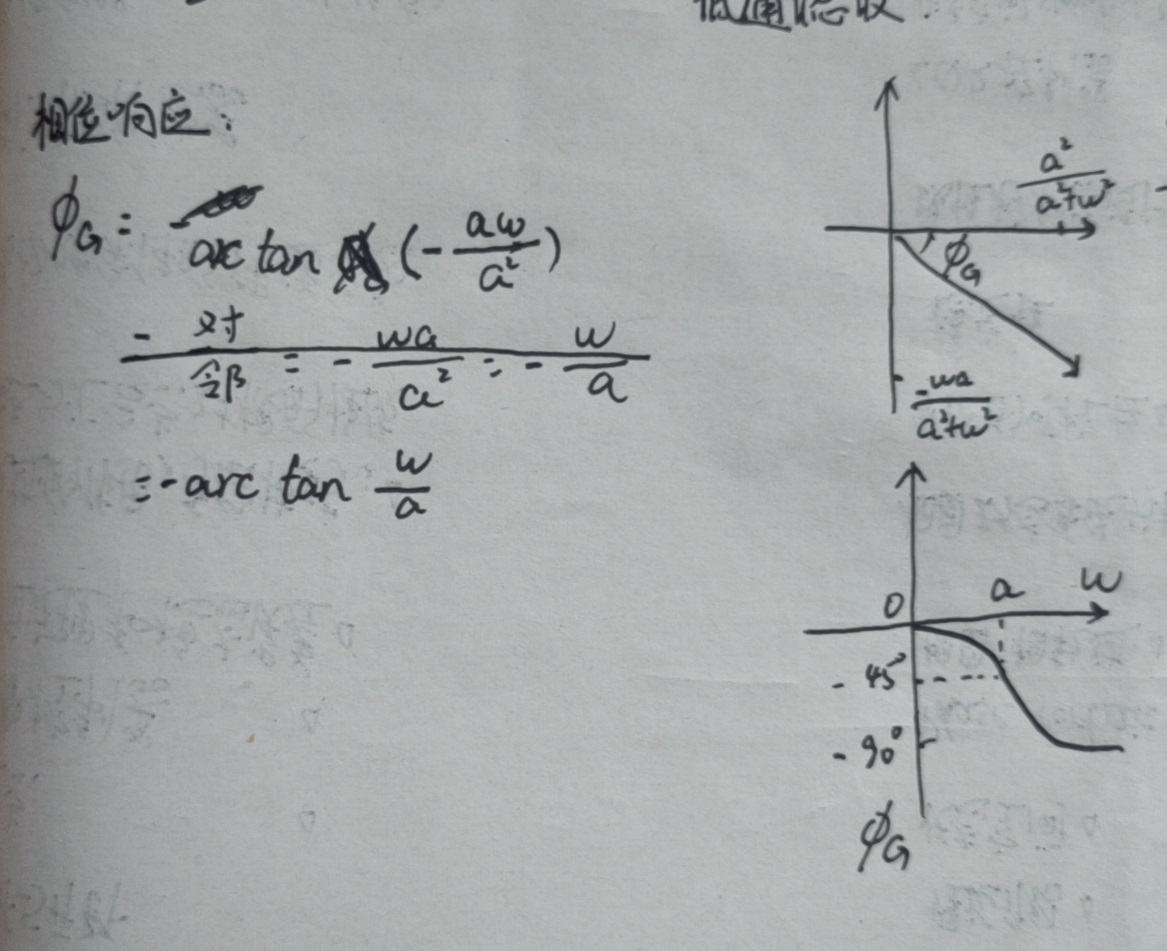 低通滤波.
相位响应:
ϕG = arc tan (- aω/a²)
- 对/邻 = - ωa/a² = - ω/a
= -arc tan ω/a
a²/(a²+ω²)
ϕG
-ωa/(a²+ω²)
0 a ω
- 45°
- 90°
ϕG